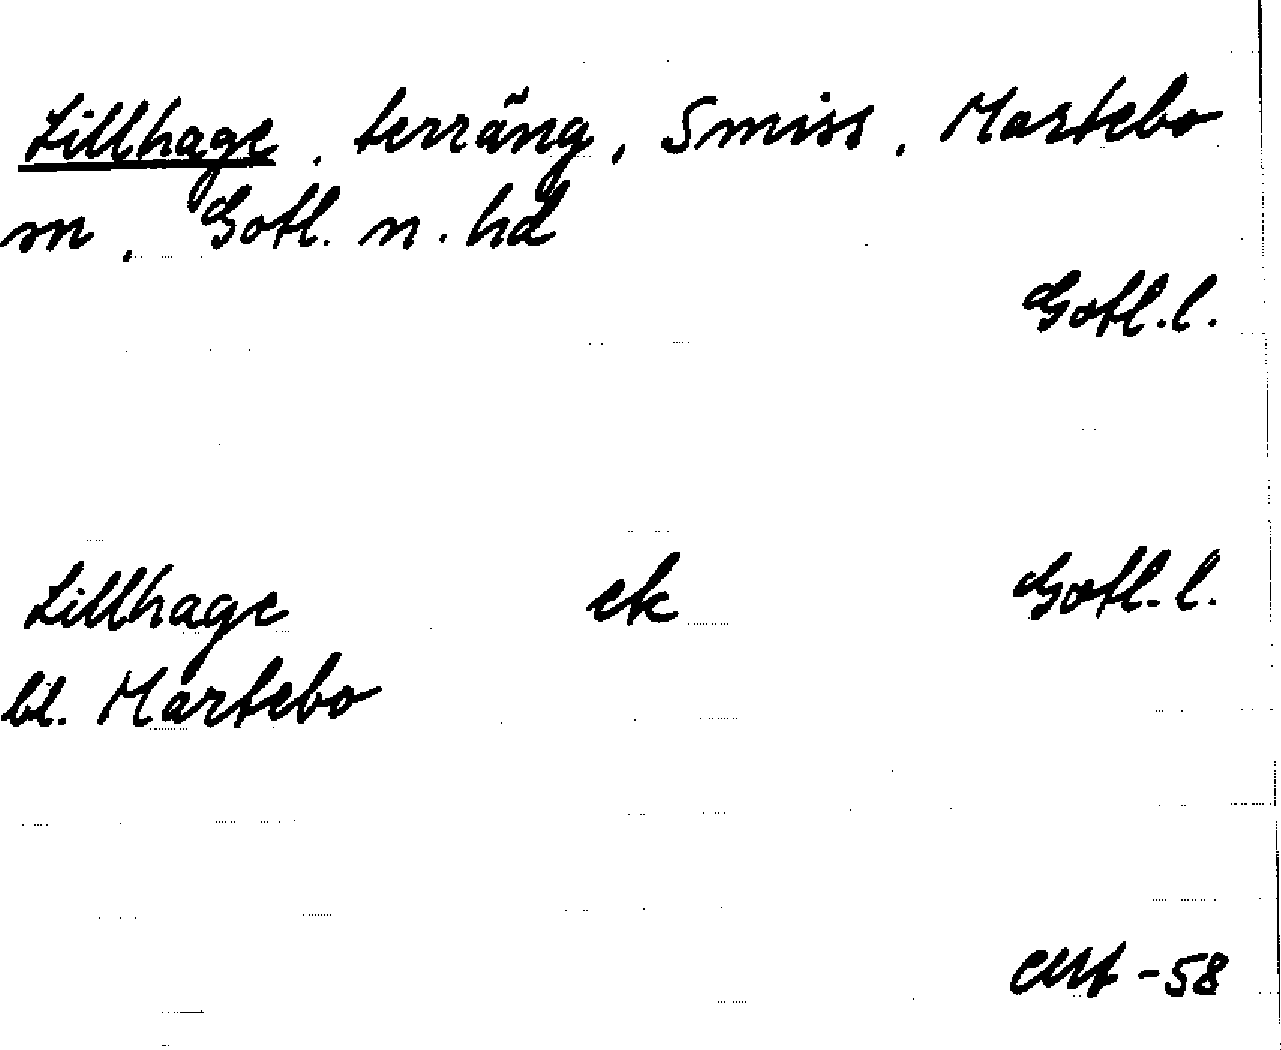 Lillhage, terräng, Smiss, Martebo
sn, Gotl. n. hd
Gotl.l.
Lillhage ek Gotl.l.
bl. Martebo
-58